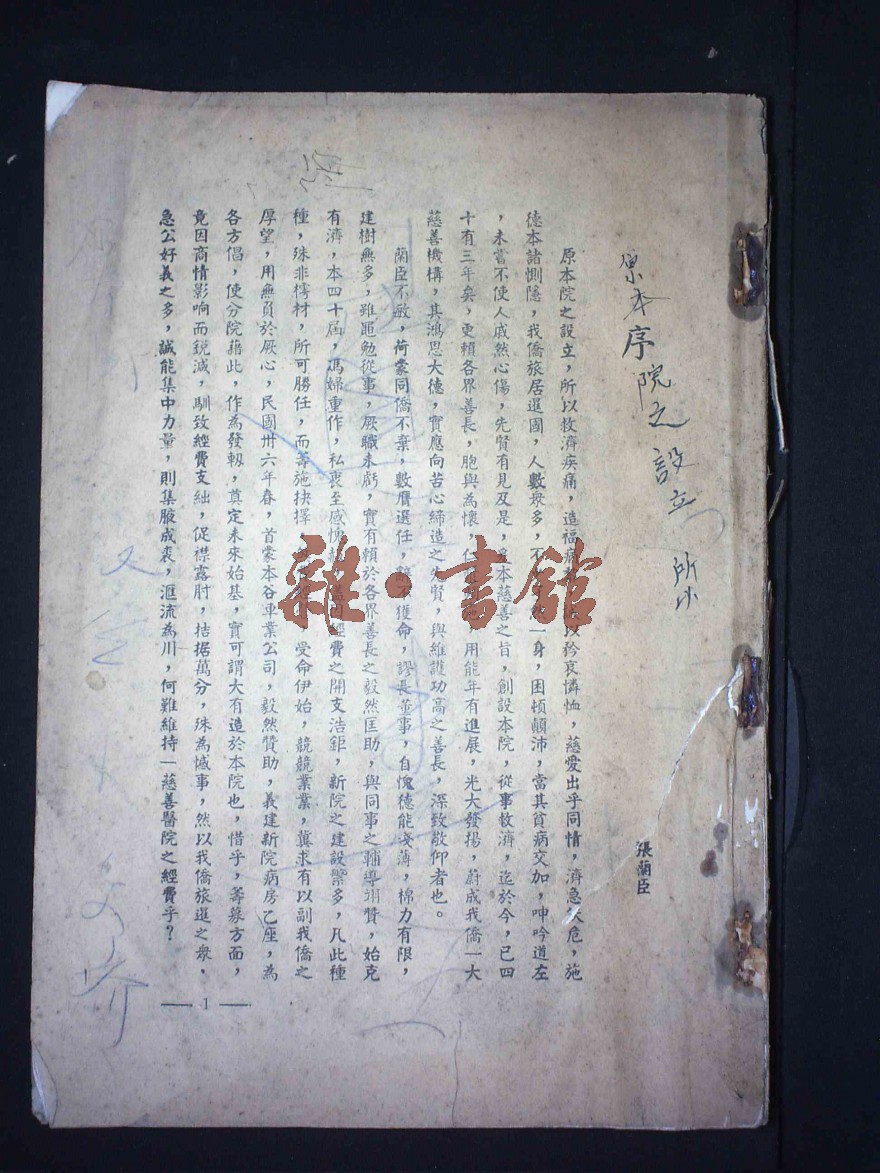 原本序院之設立 所以
張蘭臣
原本院之設立，所以救濟疾痛，造福病 以矜哀憐恤，慈愛出乎同情，濟急扶危，施
德本諸惻隱，我僑旅居暹國，人數衆多，不 一身，困頓顛沛，當其貧病交加，呻吟道左
，未嘗不使人戚然心傷，先賢有見及是，爰本慈善之旨，創設本院，從事救濟，迄於今，已四
十有三年矣，更賴各界善長，胞與為懷，仁 用能年有進展，光大發揚，蔚成我僑一大
慈善機構，其鴻恩大德，實應向苦心締造之先賢，與維護功高之善長，深致敬仰者也。
蘭臣不敏，荷蒙同僑不棄，數膺選任，辭不獲命，謬長董事，自愧德能淺薄，棉力有限，
建樹無多，雖黽勉從事，厥職未虧，實有賴於各界善長之毅然匡助，與同事之輔導翊贊，始克
有濟，本四十屆，馮婦重作，私衷至感愧赧，蓋因經費之開支浩鉅，新院之建設繁多，凡此種
種，殊非樗材，所可勝任，而籌施抉擇， 受命伊始，競競業業，冀求有以副我僑之
厚望，用無負於厥心，民國卅六年春，首蒙本谷車業公司，毅然贊助，義建新院病房乙座，為
各方倡，使分院藉此，作為發軔，奠定未來始基，實可謂大有造於本院也，惜乎，籌募方面，
竟因商情影响而銳減，馴致經費支絀，促襟露肘，拮据萬分，殊為憾事，然以我僑旅暹之衆，
急公好義之多，誠能集中力量，則集腋成裘，滙流為川，何難維持一慈善醫院之經費乎？
— 1 —
雜·書館